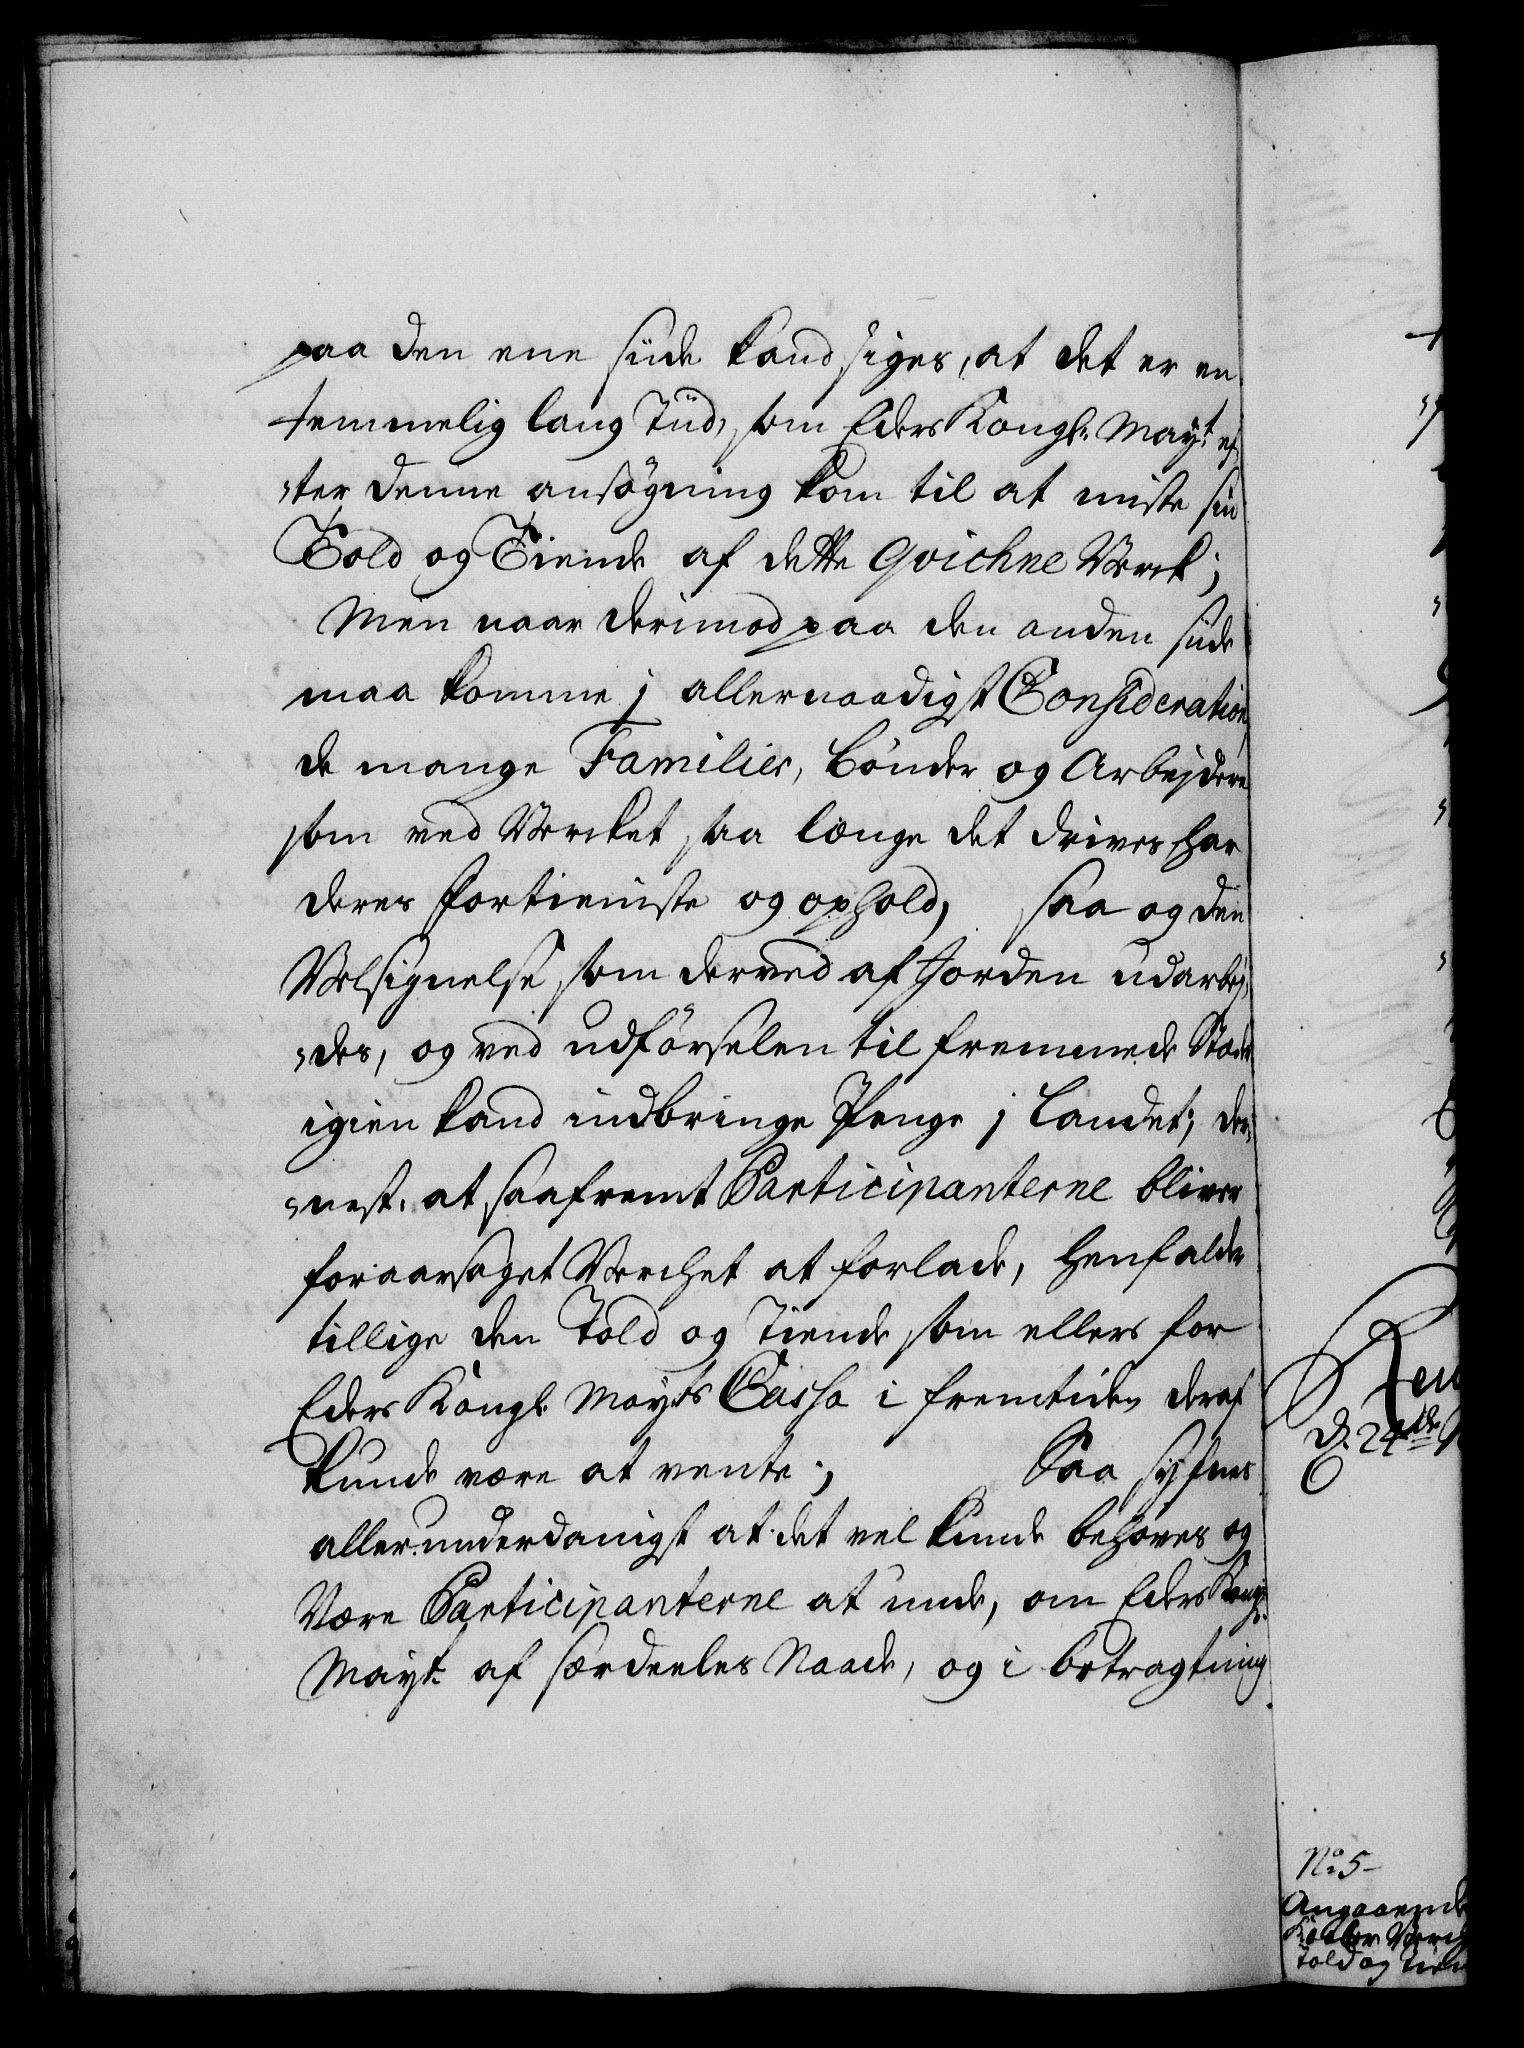 paa den ene siide kand siges, at det er en
temmelig lang Tiid, som Eders Kongl. Mayt. ef-
-ter denne ansögning kom til at miste sin
Told og Tiende af dette Qvichne Verck;
Men naar derimod paa den anden siide
maa komme j allernaadigst Consideration,
de mange Familier, bönder og Arbejdere
som ved Vercket saa længe det drives har
deres fortieniste og ophold, saa og den
Velsignelse, som derved af Jorden udarbej-
-des, og ved udförselen til fremmede Stæder
igien kand indbringe Penge j Landet; der-
-nest, at saafremt Participanterne bliver
foraarsaget Verchet at forlade, henfalder
tillige den Told og Tiende som ellers for
Eders Kongl. Mayts Cassa i fremtiden deraf
kunde være at vente; Saa syfnes
allerunderdanigst at det vel kunde behøves og
Være Participanterne at unde, om Eders Kongl.
Mayt. af særdeeles Naade, og i betragtning
d. 24de
No. 5-
Angaaende
Kaaber Verch
told og Tien